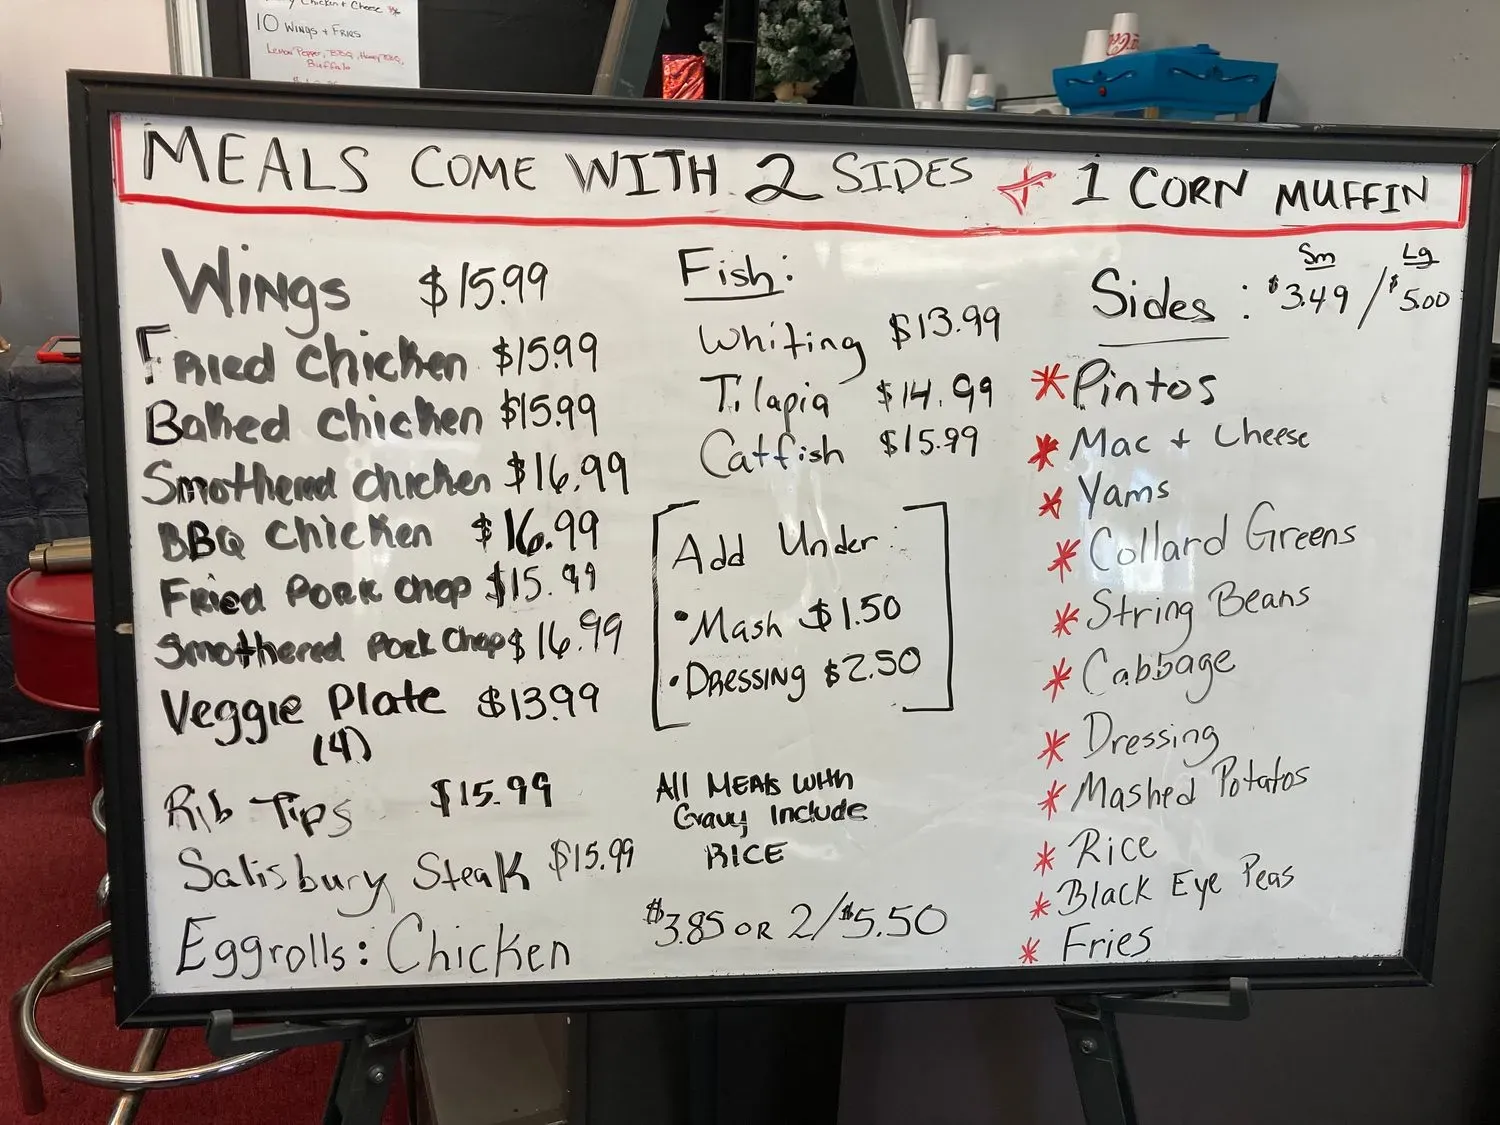 Chicken & Cheese
10 Wings + Fries
Lemon Pepper, BBQ, Honey BBQ,
Buffalo
MEALS COME WITH 2 SIDES + 1 CORN MUFFIN
Wings $15.99
Fried Chicken $15.99
Baked Chicken $15.99
Smothered Chicken $16.99
BBQ Chicken $16.99
Fried Pork Chop $15.99
Smothered Pork Chop $16.99
Veggie Plate $13.99
(4)
Rib Tips $15.99
Salisbury Steak $15.99
Eggrolls: Chicken $3.85 OR 2/$5.50
Fish:
Whiting $13.99
Tilapia $14.99
Catfish $15.99
Add Under:
• Mash $1.50
• Dressing $2.50
All Meals with
Gravy Include
RICE
Sm Lg
Sides: $3.49 / $5.00
* Pintos
* Mac + Cheese
* Yams
* Collard Greens
* String Beans
* Cabbage
* Dressing
* Mashed Potatos
* Rice
* Black Eye Peas
* Fries